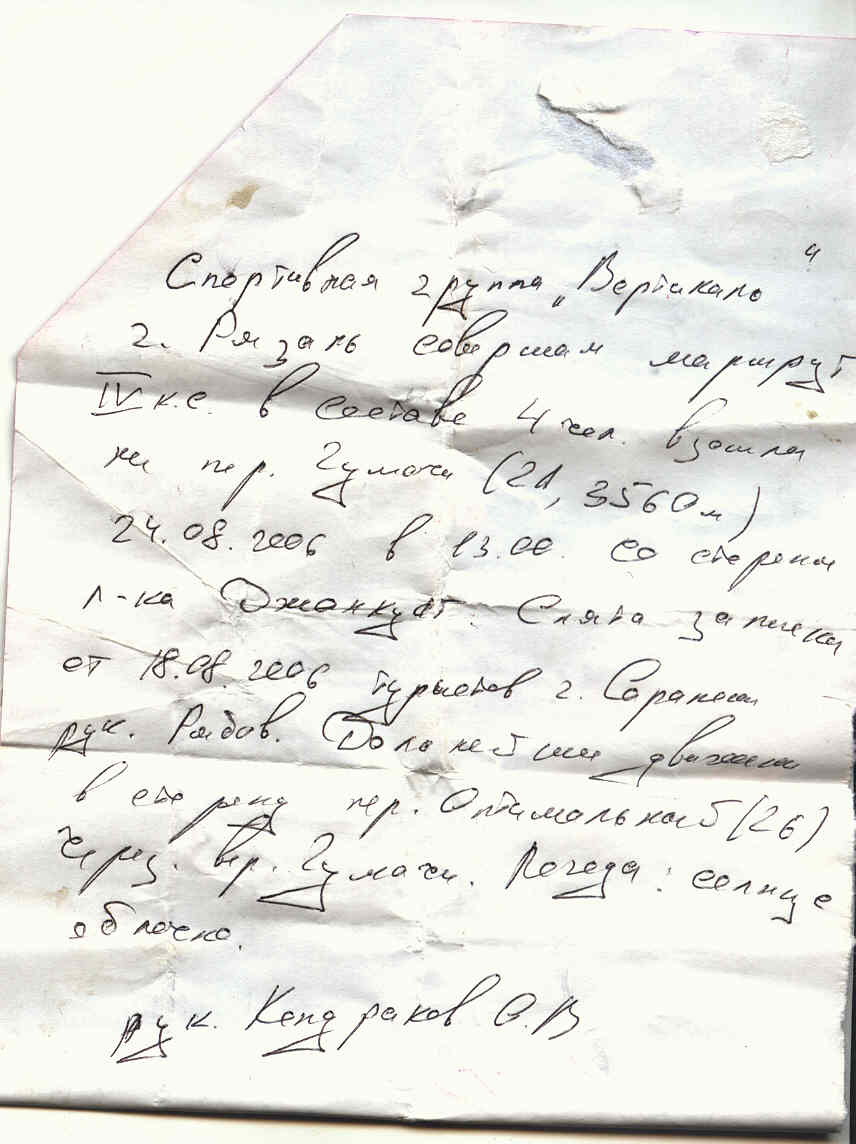 Спортивная группа „Вертикаль“
г. Рязань совершая маршрут
IV к.с. в составе 4 чел. взошла
на пер. Гумачи (2А, 3560м)
24.08.2006 в 13.00. со стороны
л-ка Джанкуат. Снята записка
от 18.08.2006 туристов г. Саранска
рук. Рябов. Дальнейшие движение
в сторону пер. Оптимальный (2Б)
Через. вер. Гумачи. Погода: солнце
облачно.
рук. Кондраков О.В